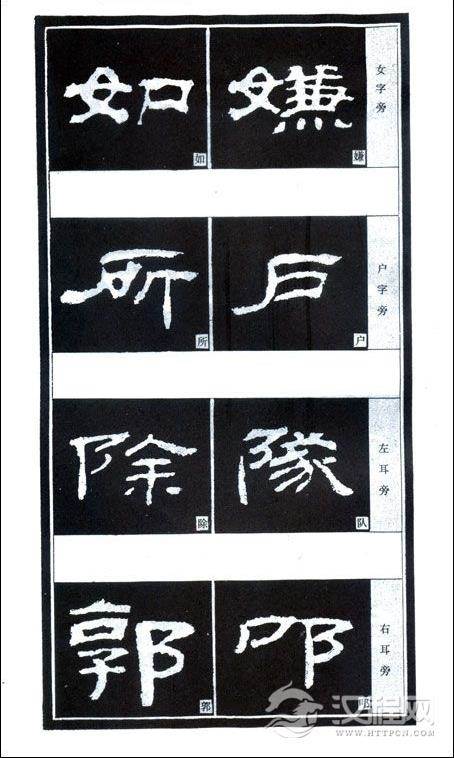 女字旁
嫌
嫌
如
如
户字旁
户
户
所
所
左耳旁
隊
队
除
除
右耳旁
郭
郭
汉程网
WWW.HTTPCN.COM